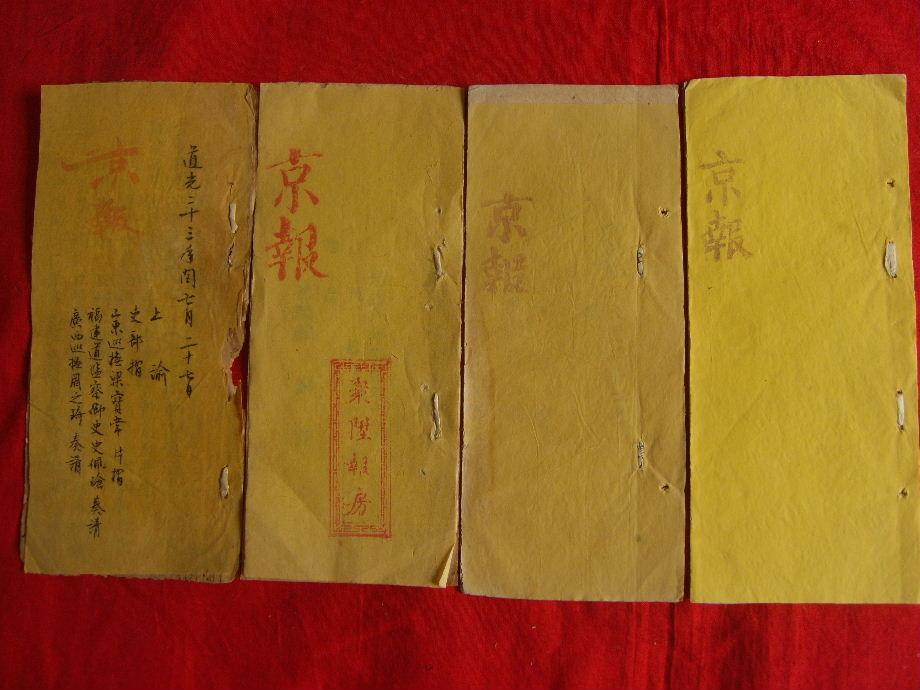 京報
道光二十三年閏七月二十七日
上諭
吏部摺
山東巡撫梁寶常片摺
福建道監察御史史佩瑲奏清
廣西巡撫周之琦奏清
京報
聚陞報房
京報
京報